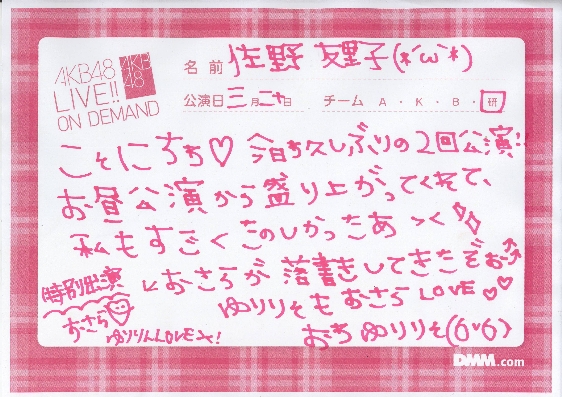 AKB48
LIVE!!
ON DEMAND
AKB
48
名前 佐野友里子(*´ω`*)
公演日 三月二十日 チーム A・K・B・研
こそにちち♡ 今日ち久しぶりの2回公演!!
お昼公演から盛り上がってくれて、
私もすごくたのしかったあっく
特別出演
おさら
ゆりりんLOVE
↳おさらが落書きしてきたぞぉ
ゆりりそもおさらLOVE♡♡
おち ゆりりそ(6v6)
DMM.com